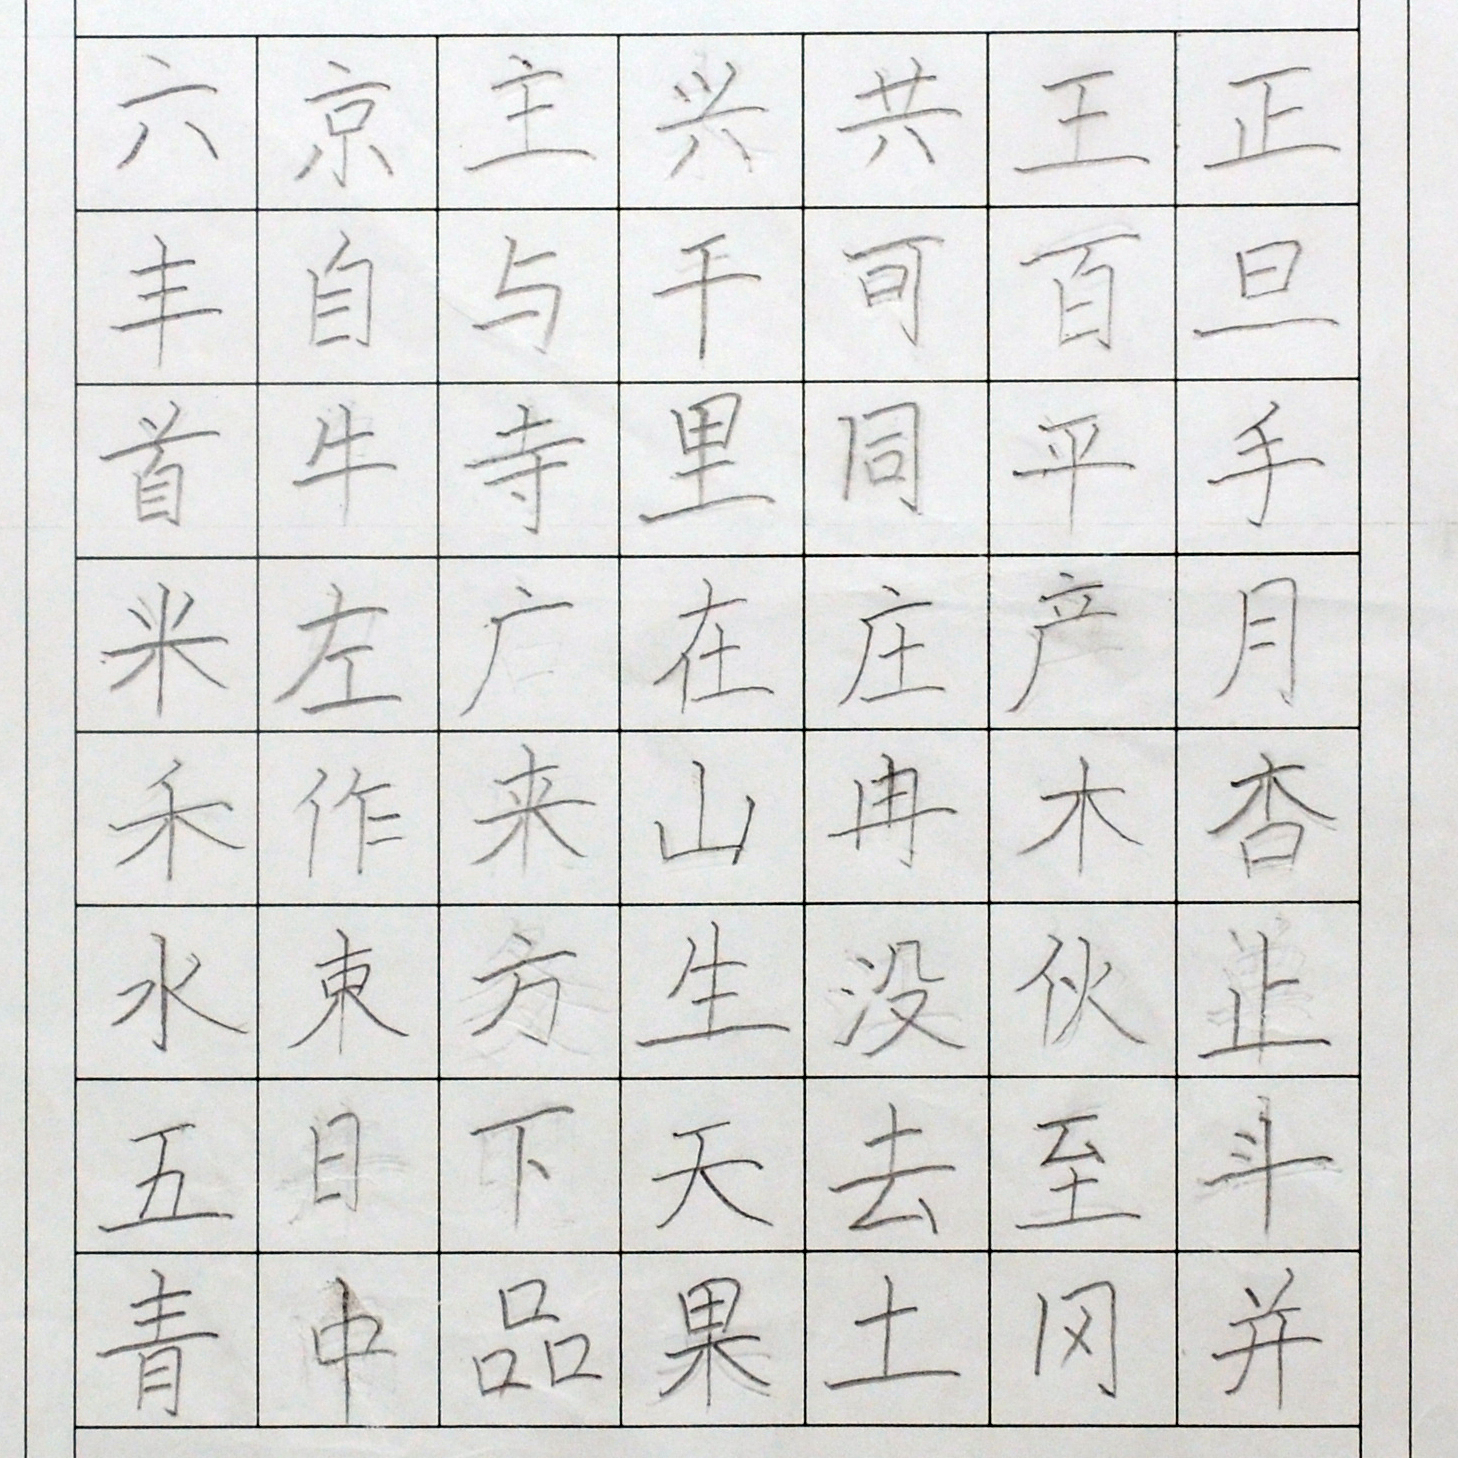 六京主兴共王正
丰自与干可百旦
首牛寺里同平手
米左广在庄产月
禾作来山冉木杏
水東方生没伙止
五日下天去至斗
青中品果土冈并